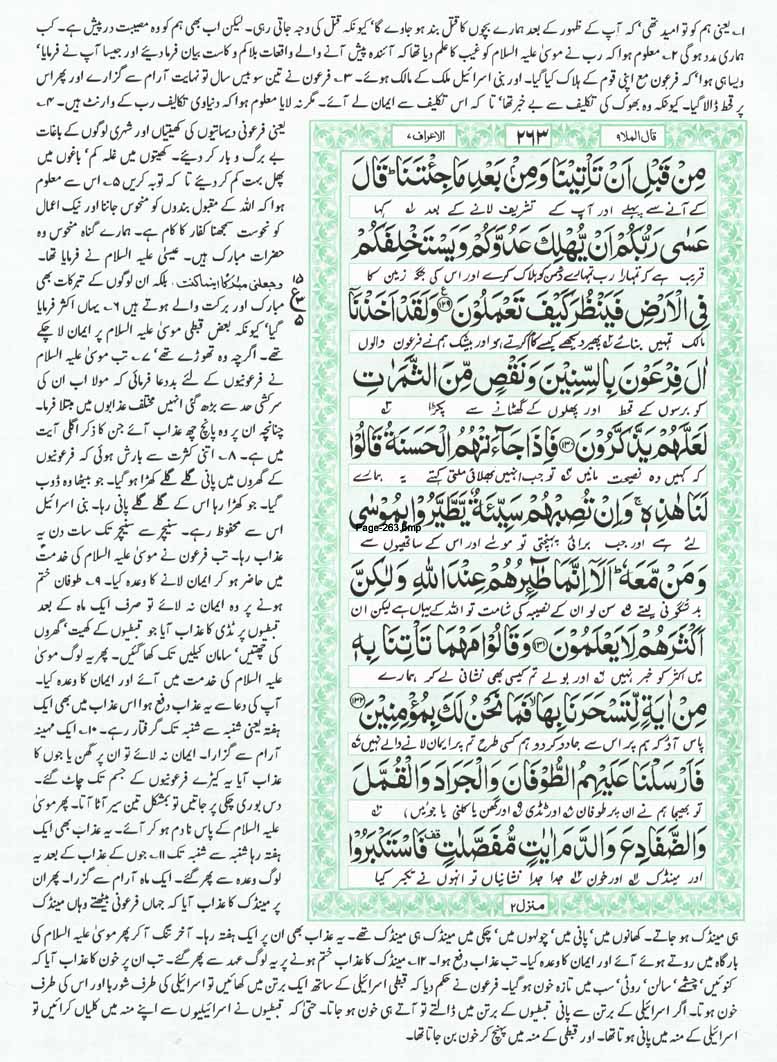 ۱۔ یعنی ہم کو تو امید تھی، کہ آپ کے ظہور کے بعد ہمارے بچوں کا قتل بند ہو جاوے گا، کیونکہ قتل کی وجہ جاتی رہی۔ لیکن اب بھی ہم کو وہ مصیبت در پیش ہے۔ کب
ہماری مدد ہو گی ۲۔ معلوم ہوا کہ رب نے موسیٰ علیہ السلام کو غیب کا علم دیا تھا کہ آئندہ پیش آنے والے واقعات بلا کم و کاست بیان فرما دیئے اور جیسا آپ نے فرمایا،
ویسا ہی ہوا، کہ فرعون مع اپنی قوم کے ہلاک کیا گیا۔ اور بنی اسرائیل ملک کے مالک ہوئے۔ ۳۔ فرعون نے تین سو بیس سال تو نہایت آرام سے گزارے اور پھر اس
پر قحط ڈالا گیا۔ کیونکہ وہ بھوک کی تکلیف سے بے خبر تھا، تا کہ اس تکلیف سے ایمان لے آئے۔ مگر نہ لایا معلوم ہوا کہ دنیاوی تکالیف رب کے وارنٹ ہیں۔ ۴۔
قال الملا۹
۲۶۳
الاعراف۷
مِنْ قَبْلِ اَنْ تَاْتِيَنَا وَمِنْۢ بَعْدِ مَا جِئْتَنَا ؕ قَالَ
کے آنے سے پہلے اور آپ کے تشریف لانے کے بعد کہا
عَسٰى رَبُّكُمْ اَنْ يُّهْلِكَ عَدُوَّكُمْ وَيَسْتَخْلِفَكُمْ
قریب ہے کہ تمہارا رب تمہارے دشمن کو ہلاک کرے اور اس کی جگہ زمین کا
فِى الْاَرْضِ فَيَنْظُرَ كَيْفَ تَعْمَلُوْنَ ﴿۱۲۹﴾ وَلَقَدْ اَخَذْنَاۤ
مالک تمہیں بنائے پھر دیکھے کیسے کام کرتے ہو اور بیشک ہم نے فرعون والوں
اٰلَ فِرْعَوْنَ بِالسِّنِيْنَ وَنَقْصٍ مِّنَ الثَّمَرٰتِ
کو برسوں کے قحط اور پھلوں کے گھٹانے سے پکڑا
لَعَلَّهُمْ يَذَّكَّرُوْنَ ﴿۱۳۰﴾ فَاِذَا جَآءَتْهُمُ الْحَسَنَةُ قَالُوْا
کہ کہیں وہ نصیحت مانیں تو جب انہیں بھلائی ملتی کہتے یہ ہمارے
لَنَا هٰذِهٖ ۚ وَاِنْ تُصِبْهُمْ سَيِّئَةٌ يَّطَّيَّرُوْا بِمُوْسٰى
Page-263.bmp
لئے ہے اور جب برائی پہنچتی تو موسیٰ اور اس کے ساتھیوں سے
وَمَنْ مَّعَهٗ ؕ اَلَاۤ اِنَّمَا طٰٓئِرُهُمْ عِنْدَ اللّٰهِ وَلٰكِنَّ
بدشگونی لیتے سن لو ان کے نصیبہ کی شامت تو اللہ کے یہاں ہے لیکن ان
اَكْثَرَهُمْ لَا يَعْلَمُوْنَ ﴿۱۳۱﴾ وَقَالُوْا مَهْمَا تَاْتِنَا بِهٖ
میں اکثر کو خبر نہیں اور بولے تم کیسی بھی نشانی لے کر ہمارے
مِنْ اٰيَةٍ لِّتَسْحَرَنَا بِهَا ۙ فَمَا نَحْنُ لَكَ بِمُؤْمِنِيْنَ ﴿۱۳۲﴾
پاس آؤ کہ ہم پر اس سے جادو کر دو ہم کسی طرح تم پر ایمان لانے والے نہیں
فَاَرْسَلْنَا عَلَيْهِمُ الطُّوْفَانَ وَالْجَرَادَ وَالْقُمَّلَ
تو بھیجا ہم نے ان پر طوفان اور ٹڈی اور گھن یا کلنی یا جوئیں
وَالضَّفَادِعَ وَالدَّمَ اٰيٰتٍ مُّفَصَّلٰتٍ فَاسْتَكْبَرُوْا
اور مینڈک اور خون جدا جدا نشانیاں تو انہوں نے تکبر کیا
منزل۲
یعنی فرعونی دیہاتیوں کی کھیتیاں اور شہری لوگوں کے باغات
بے برگ و بار کر دیئے۔ کھیتوں میں غلہ کم، باغوں میں
پھل بہت کم کر دیئے تا کہ توبہ کریں ۵۔ اس سے معلوم
ہوا کہ اللہ کے مقبول بندوں کو منحوس جاننا اور نیک اعمال
کو نحوست سمجھنا کفار کا کام ہے۔ ہمارے گناہ منحوس وہ
حضرات مبارک ہیں۔ عیسیٰ علیہ السلام نے فرمایا تھا۔
وجعلنی مبٰرکا اینما کنت۔ بلکہ ان لوگوں کے تبرکات بھی
مبارک اور برکت والے ہوتے ہیں ۶۔ یہاں اکثر فرمایا
گیا، کیونکہ بعض قبطی موسیٰ علیہ السلام پر ایمان لا چکے
تھے۔ اگرچہ وہ تھوڑے تھے، ۷۔ تب موسیٰ علیہ السلام
نے فرعونیوں کے لئے بددعا فرمائی کہ مولا اب ان کی
سرکشی حد سے بڑھ گئی انہیں مختلف عذابوں میں مبتلا فرما۔
چنانچہ ان پر وہ پانچ چھ عذاب آئے جن کا ذکر اگلی آیت
میں ہے۔ ۸۔ اتنی کثرت سے بارش ہوئی کہ فرعونیوں
کے گھروں میں پانی گلے گلے کھڑا ہو گیا۔ جو بیٹھا وہ ڈوب
گیا۔ جو کھڑا رہا اس کے گلے گلے پانی رہا۔ بنی اسرائیل
اس سے محفوظ رہے۔ سنیچر سے سنیچر تک سات دن یہ
عذاب رہا۔ تب فرعون نے موسیٰ علیہ السلام کی خدمت
میں حاضر ہو کر ایمان لانے کا وعدہ کیا۔ ۹۔ طوفان ختم
ہونے پر وہ ایمان نہ لائے تو صرف ایک ماہ کے بعد
قبطیوں پر ٹڈی کا عذاب آیا جو قبطیوں کے کھیت، گھروں
کی چھتیں، سامان کیلیں تک کھا گئیں۔ پھر یہ لوگ موسیٰ
علیہ السلام کی خدمت میں آئے اور ایمان کا وعدہ کیا۔
آپ کی دعا سے یہ عذاب دفع ہوا اس میں بھی ایک
ہفتہ یعنی شنبہ سے شنبہ تک گرفتار رہے۔ ۱۰۔ ایک مہینہ
آرام سے گزارا۔ ایمان نہ لائے تو ان پر گھن یا جوں کا
عذاب آیا یہ کیڑے فرعونیوں کے جسم تک چاٹ گئے۔
دس بوری چکی پر جاتیں تو بمشکل تین سیر آٹا آتا۔ پھر موسیٰ
علیہ السلام کے پاس نادم ہو کر آئے۔ یہ عذاب بھی ایک
ہفتہ رہا شنبہ سے شنبہ تک ۱۱۔ جوں کے عذاب کے بعد یہ
لوگ وعدہ سے پھر گئے۔ ایک ماہ آرام سے گزرا۔ پھر ان
پر مینڈک کا عذاب آیا کہ جہاں فرعونی بیٹھتے وہاں مینڈک
ہی مینڈک ہو جاتے۔ کھانوں میں، پانی میں، چولہوں میں، چکی میں مینڈک ہی مینڈک تھے۔ یہ عذاب بھی ان پر ایک ہفتہ رہا۔ آخر تنگ آ کر پھر موسیٰ علیہ السلام کی
بارگاہ میں روتے ہوئے آئے اور ایمان کا وعدہ کیا۔ تب عذاب دفع ہوا۔ ۱۲۔ مینڈک کا عذاب ختم ہونے پر یہ لوگ عہد سے پھر گئے۔ تب ان پر خون کا عذاب آیا کہ
کنوئیں، چشمے، سالن، روٹی، سب میں تازہ خون ہو گیا۔ فرعون نے حکم دیا کہ قبطی اسرائیلی کے ساتھ ایک برتن میں کھائیں تو اسرائیلی کی طرف شوربا اور اس کی طرف
خون ہوتا۔ اگر اسرائیلی کے برتن سے پانی قبطیوں کے برتن میں ڈالتے تو آتے ہی خون ہو جاتا۔ حتیٰ کہ قبطیوں نے اسرائیلیوں سے اپنے منہ میں کلیاں کرائیں تو
اسرائیلی کے منہ میں پانی ہوتا تھا۔ اور قبطی کے منہ میں پہنچ کر خون بن جاتا تھا۔